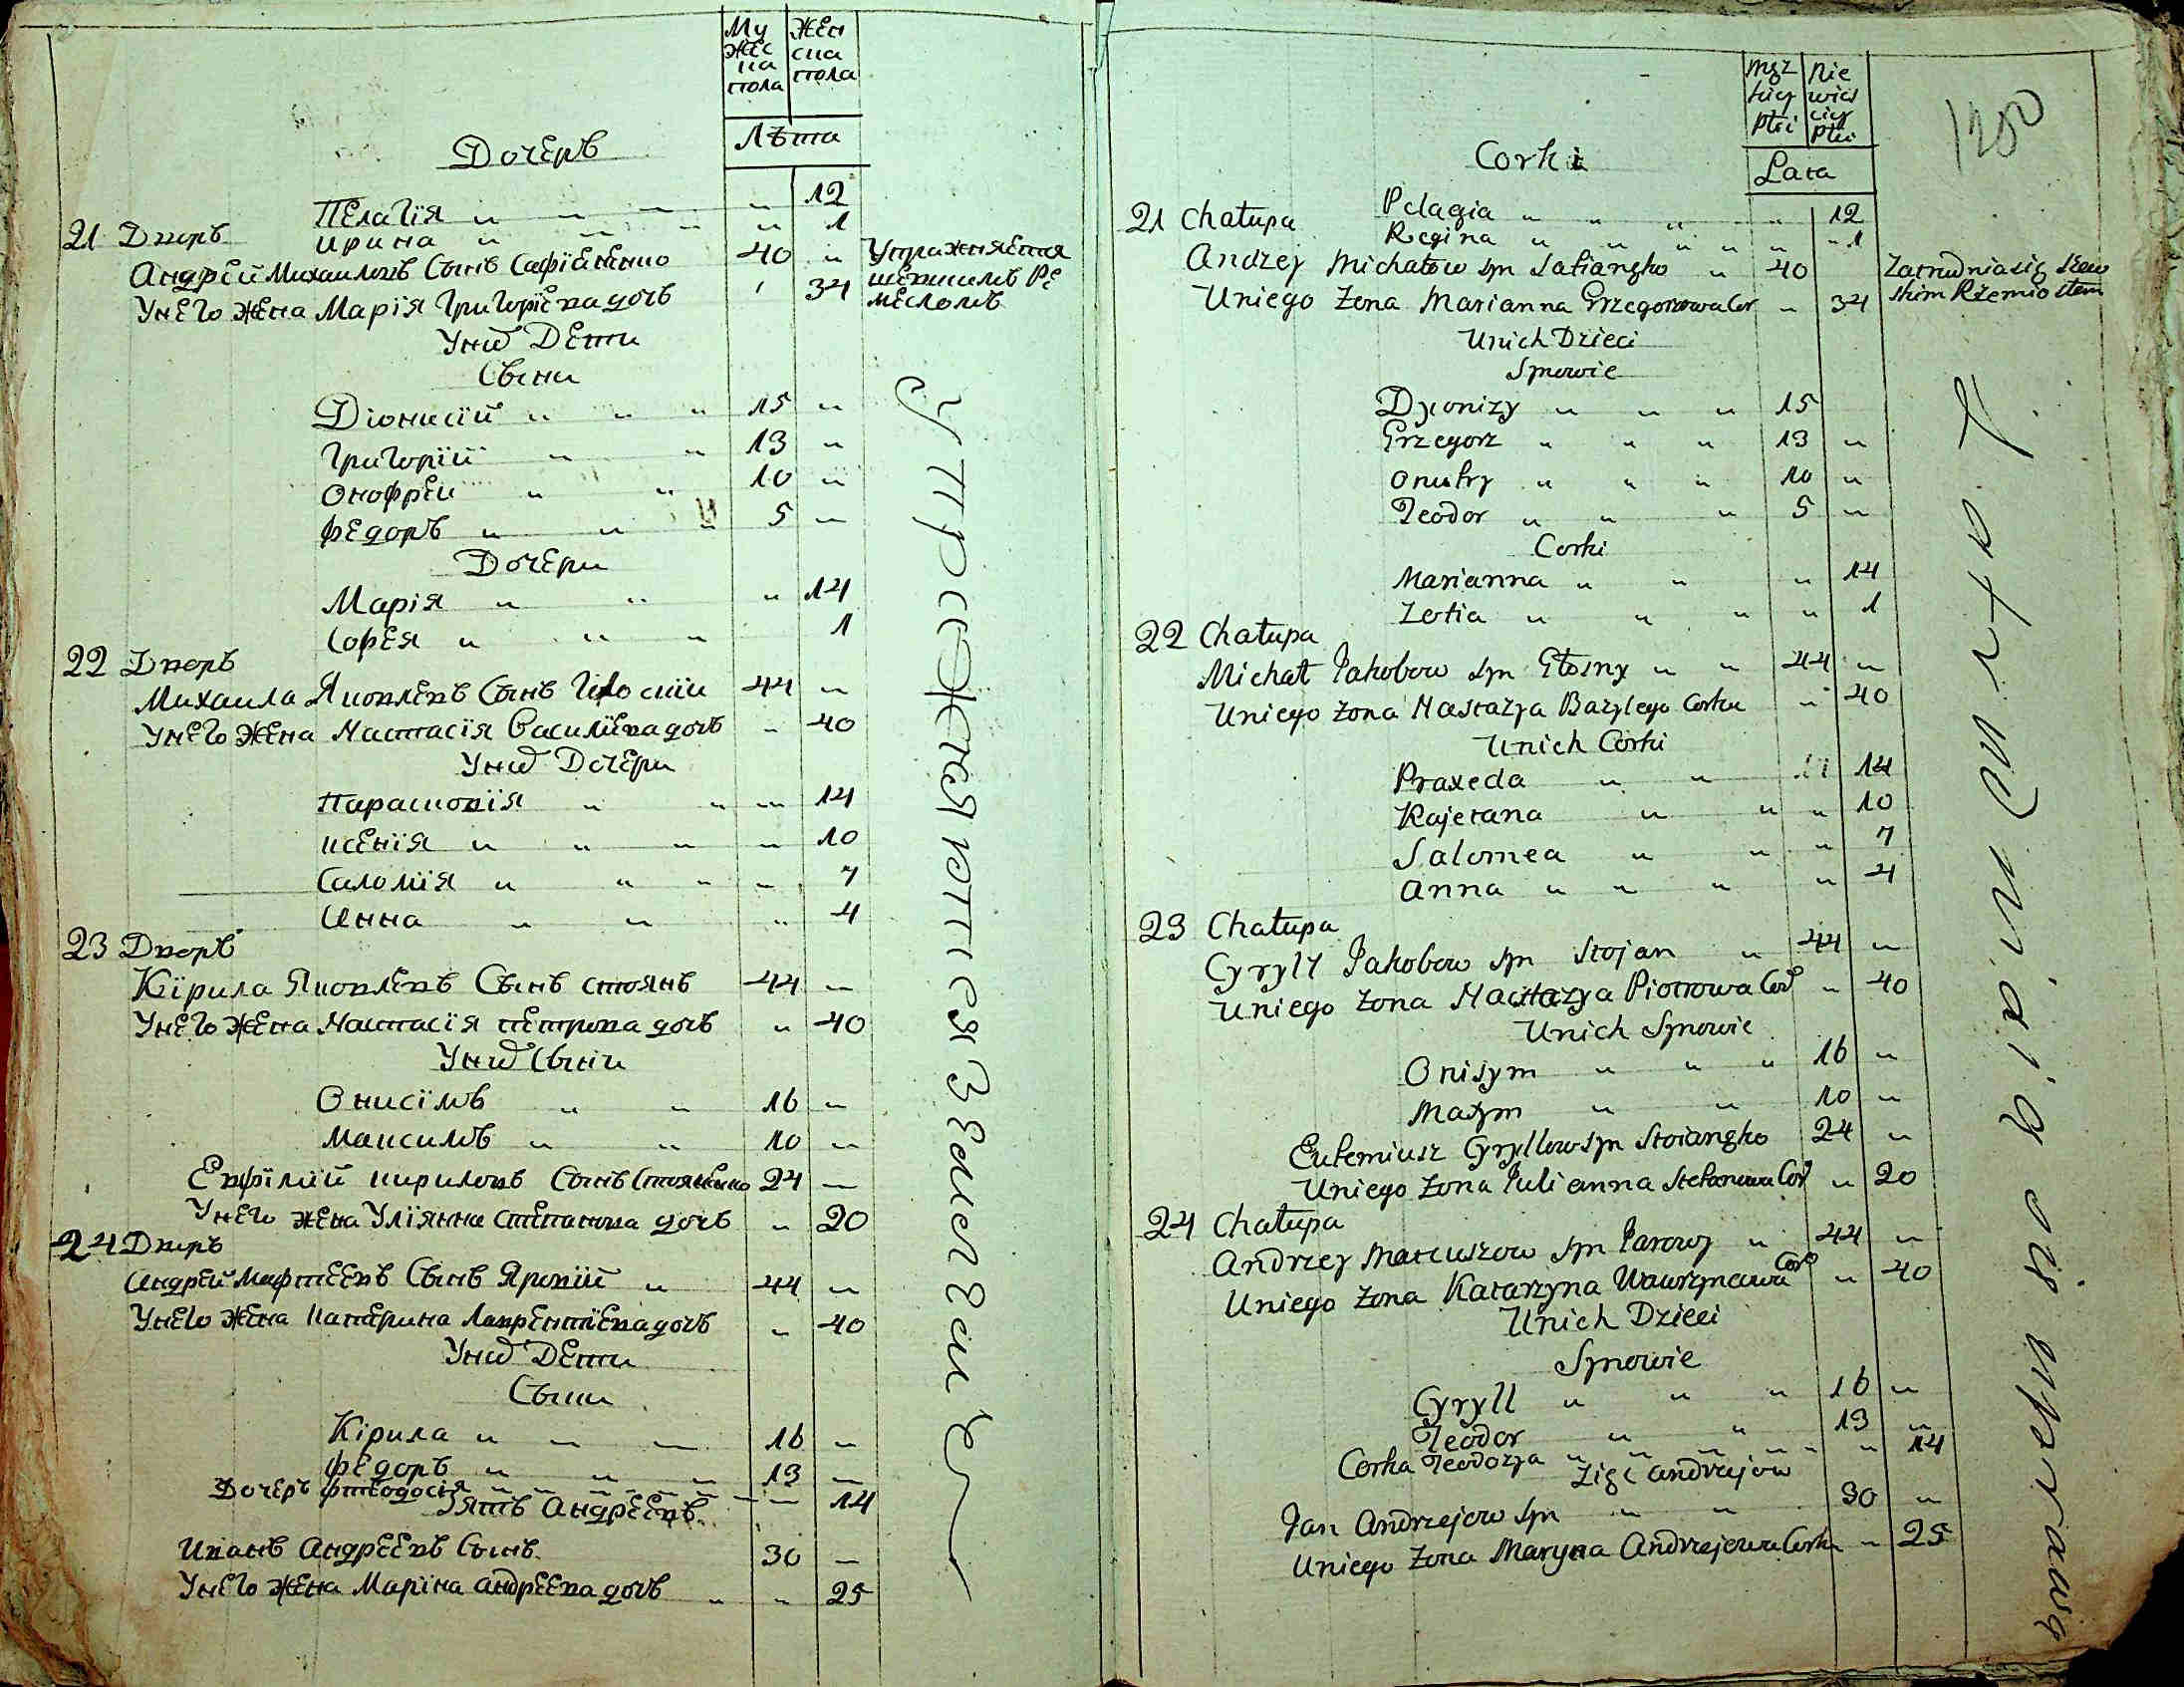 Му Жен
жес ска
ка пола
пола
Дочерѣ
Лѣта
Пелагїя " " " " 12
21 Дворъ
Ирина " " " " 1
Андрей Михаиловъ Сынъ Сафїѧненко 40 "
Унего жена Марїя Григорїева дочь " 34
Упражняется
шевскимъ Ре
месломъ
Унихъ Дети
Сыни
Дїонисїй " " " 15 "
Григорїй " " 13 "
Онофрей " " 10 "
Федоръ " " " 5 "
Дочери
Марїя " " " 14
Софея " " " 1
22 Дворъ
Михаила Яковлевъ Сынъ 44 "
Унего жена Настасїя Василїева дочь " 40
Унихъ Дочери
Парасковїя " " " 14
Ксенїя " " " " 10
Саломїя " " " " 7
Анна " " " 4
23 Дворъ
Кїрила Яковлевъ Сынъ Стоянъ 44 "
Унего жена Настасїя Петрова дочь " 40
Унихъ Сыни
Онисїмъ " " 16 "
Максимъ " " 10 "
Евфїмїй Кириловъ Сынъ Стояненко 24 "
Унего жена Улїянна Степанова дочь " 20
24 Дворъ
Андрей Мафтеевъ Сынъ Яровїй " 44 "
Унего жена Катерина Лаврентїева дочь " 40
Унихъ Дети
Сыни
Кїрила " " " 16 "
Федоръ " " " 13 "
Дочерь Фтеодосїя " " " 14
Зять Андреевъ
Иванъ Андреевъ Сынъ 30 "
Унего жена Марїна Андреева дочь " " 25
Упражняются Земледел
męz nie
kiey wies
płci ciey
płci
Corki
Lata
1250
Pelagia " " " " 12
21 Chałupa
Regina " " " " " 1
Andrzej Michałow syn Safiangko " 40
Uniego Żona Marianna Grzegorzowa Cor " 34
Zatrudnia się Szew
skim Rzemiosłem
Unich Dzieci
Synowie
Dyonizy " " " 15
Grzegorz " " " 13 "
Onufry " " " 10 "
Teodor " " " 5 "
Corki
Marianna " " " 14
Zofia " " " " 1
22 Chałupa
Michał Jakobow syn Głosny " " 44 "
Uniego żona Nastazya Bazylego Corka " 40
Unich Corki
Praxeda " " 14
Kajetana " " " 10
Salomea " " " 7
Anna " " " " 4
23 Chałupa
Cyryll Jakobow syn Stojan " 44 "
Uniego Żona Nastazya Piotrowa Cor " 40
Unich Synowie
Onisym " " " 16 "
Maxym " " 10 "
Eufemiusz Cyryllow syn Stoiangko 24 "
Uniego Żona Julianna Stefanowa Cor " 20
24 Chałupa
Andrzej Mateuszow syn Jarowy " 44 "
Uniego Żona Katarzyna Wawrzyncowa Cor " 40
Unich Dzieci
Synowie
Cyryll " " " 16 "
Teodor " " 13 "
Corka Teodozya " " " " " " 14
Zięć Andrzejow
Jan Andrzejow syn " " 30 "
Uniego Żona Maryna Andrzejowa Corka " 25